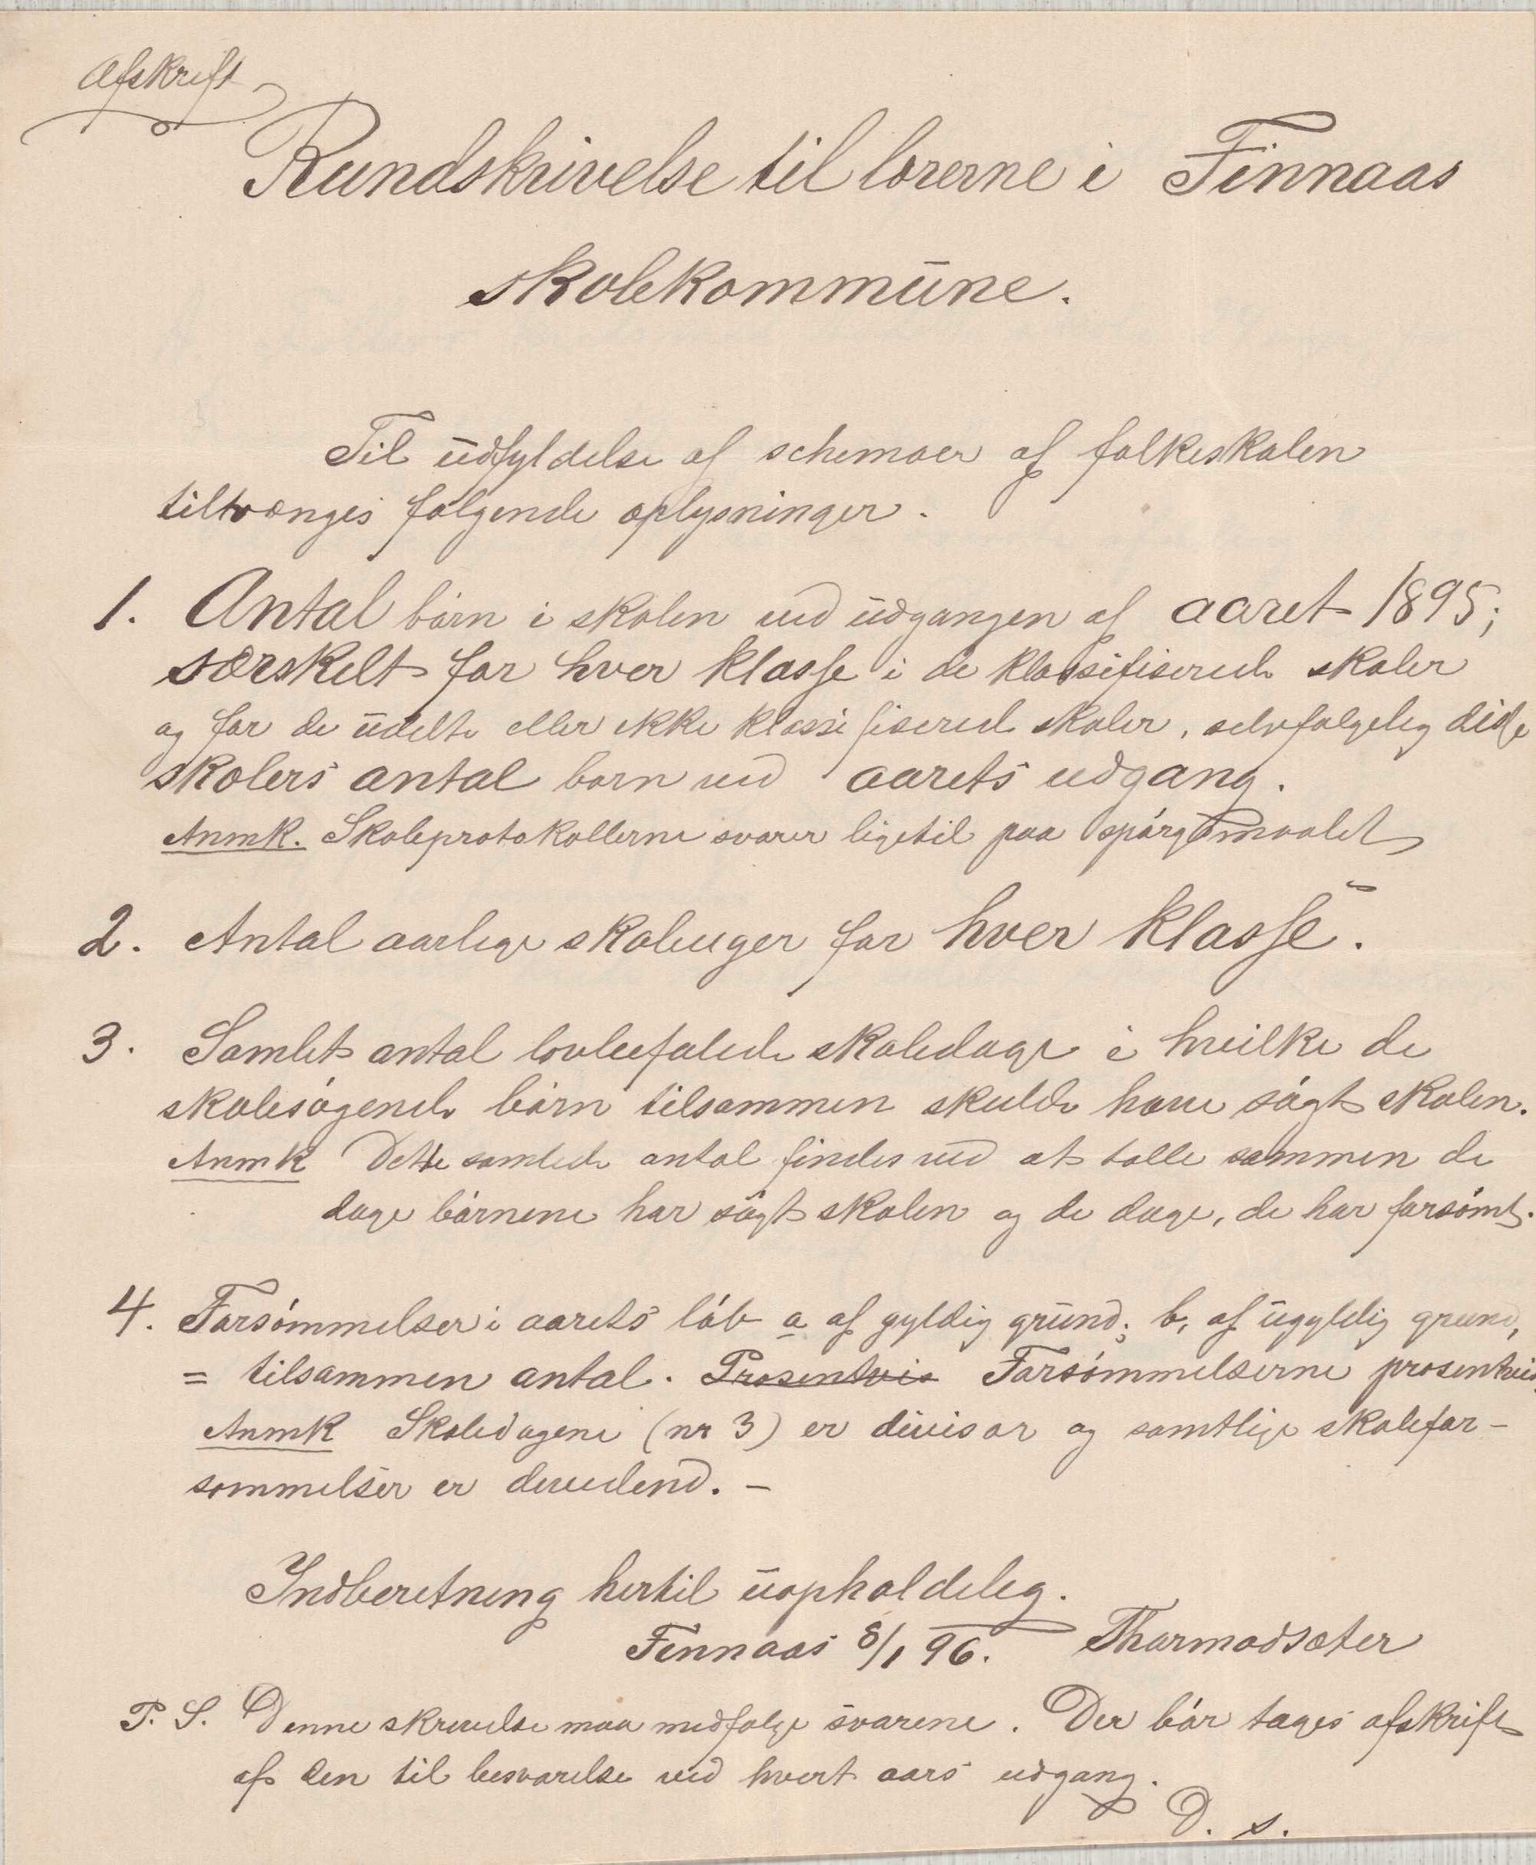 Afskrift
Rundskrivelse til lærerne i Finnaas
skolekommune.
Til udfyldelse af schemaer af folkeskolen
tiltrænges følgende oplysninger.
1. Antal børn i skolen ved udgangen af aaret 1895;
særskelt for hver klasse i de klassifiserede skoler
og for de udelte eller ikke klassifiserede skoler, selvfølgelig disse
skolers antal børn ved aarets udgang.
Anmk. Skoleprotokollerne svarer ligetil paa spørgsmaalet
2. Antal aarlige skoleuger for hver klasse.
3. Samlet antal lovbefalede skoledage i hvilke de
skolesøgende børn tilsammen skulde have søgt skolen.
Anmk Dette samlede antal findes ved at tælle sammen de
dage børnene har søgt skolen og de dage, de har forsømt.
4. Forsømmelser i aarets løb a af gyldig grund; b, af ugyldig grund,
= tilsammen antal. Prosentvis Forsømmelserne prosentvis.
Anmk Skoledagene (nr 3) er divisor og samtlige skolefor-
sømmelser er dividend. -
Indberetning hertil uopholdeleg.
Finnaas 8/1 96. Thormodsæter
P. S. Denne skrivelse maa medfølge svarene. Der bør tages afskrift
af den til besvarelse ved hvert aars udgang.
D. s.